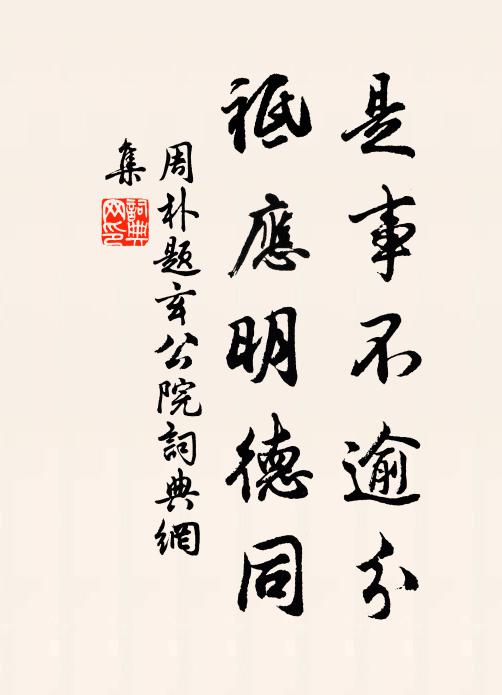 是事不逾分
祗應明德同
周朴題玄公院詞典網
集
詞典網印